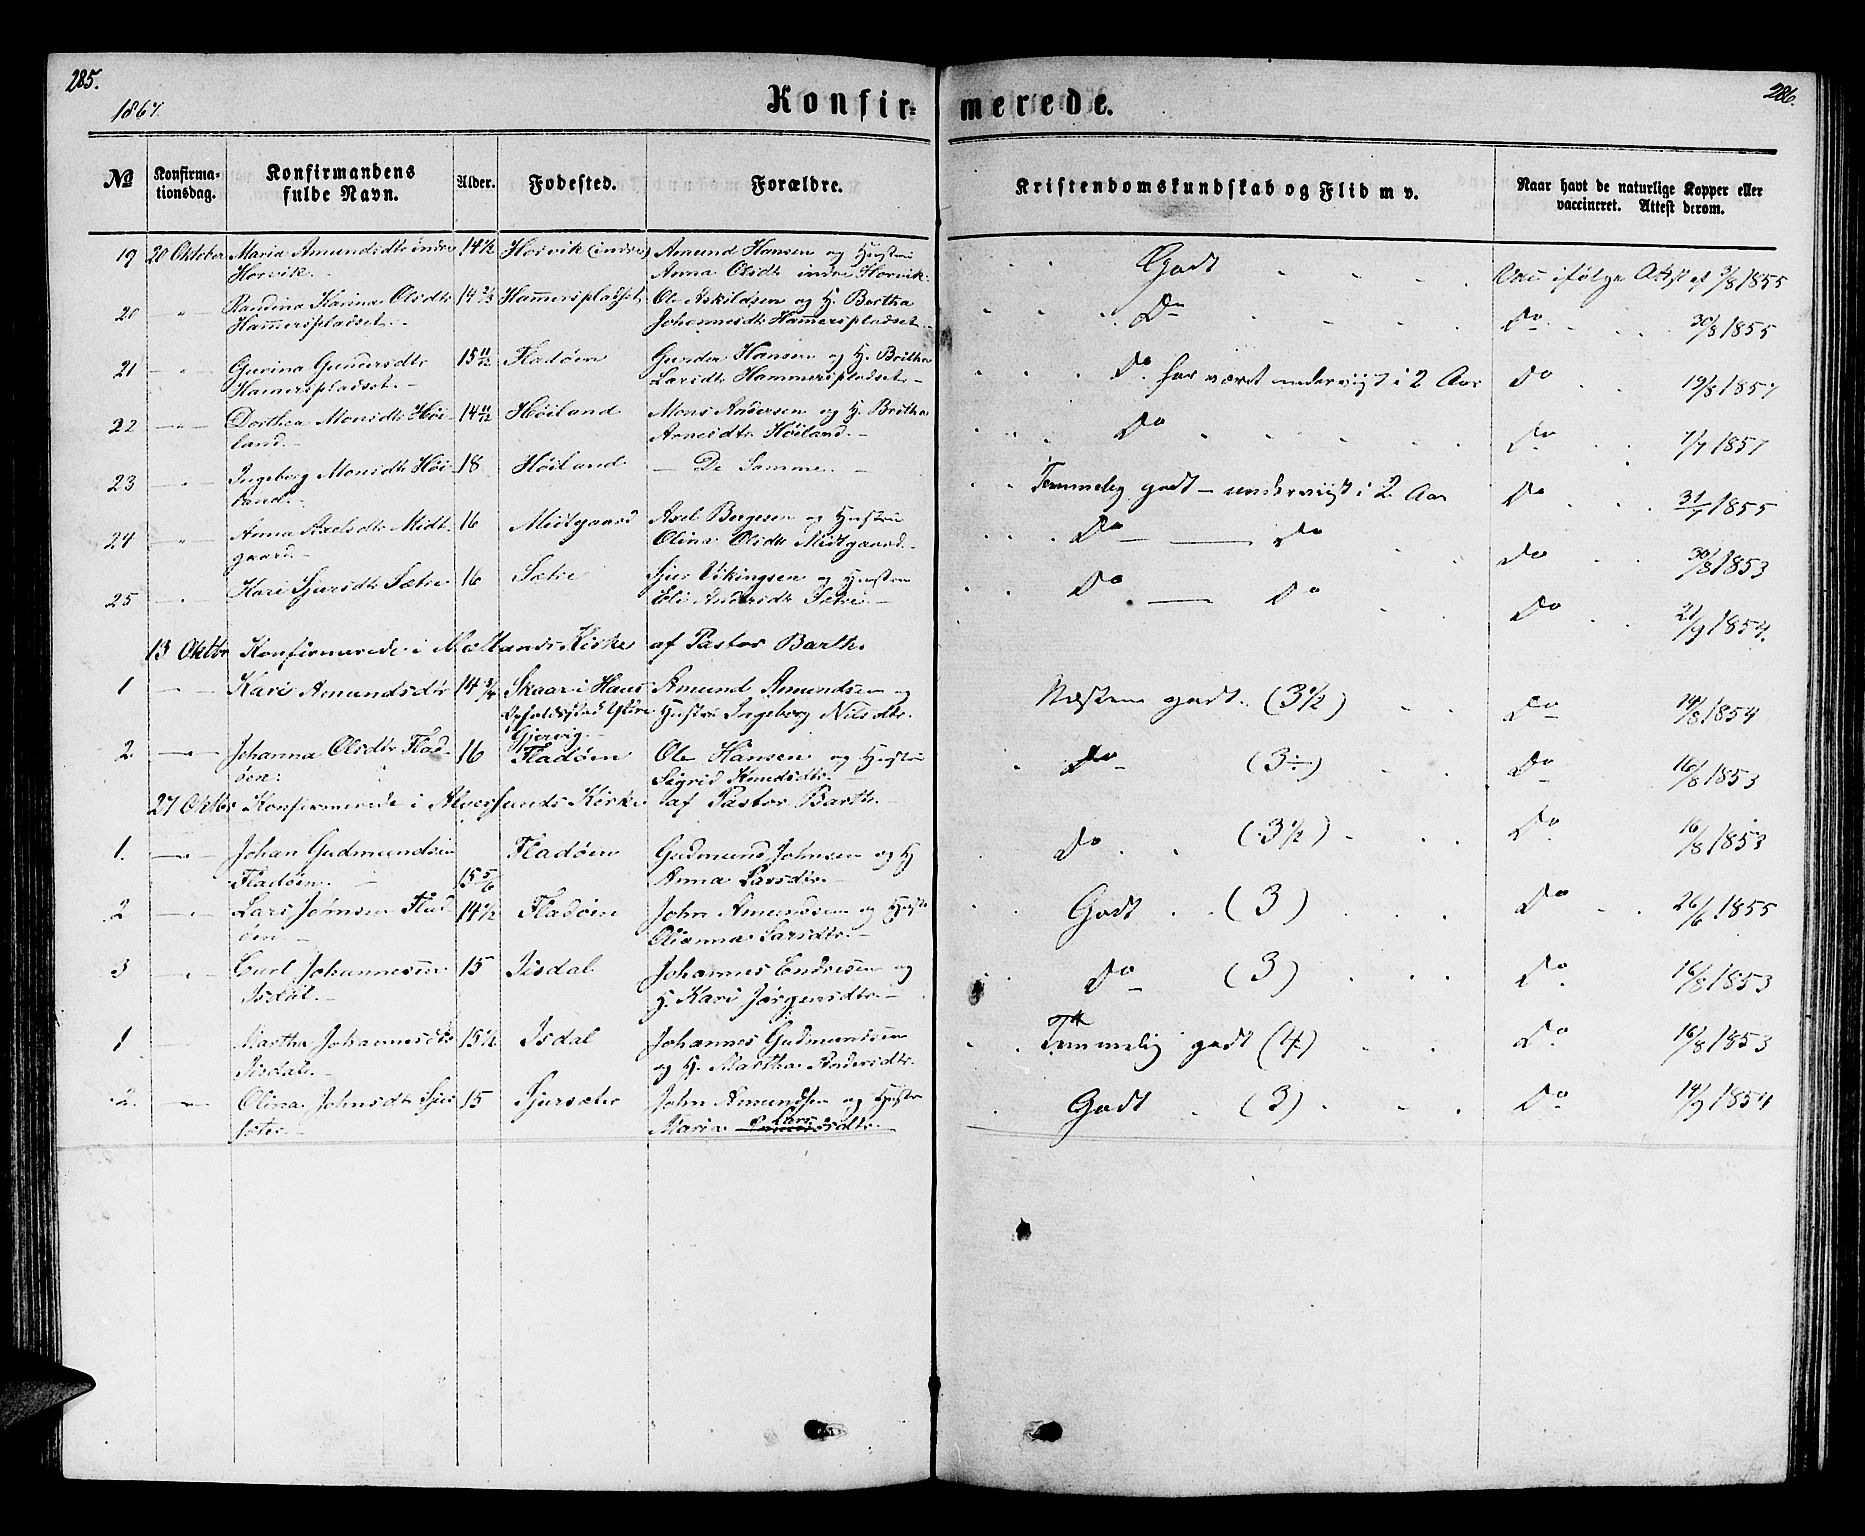 285.
1867.
Konfir=
merede.
286.
No
Konfirma-
tionsdag.
Konfirmandens
fulde Navn.
Alder.
Fødested.
Forældre.
Kristendomskundskab og Flid m v.
Naar havt de naturlige Kopper eller
vaccineret. Attest derom.
19 20 Oktober Maria Amundsdtr indre 14 1/2 Horvik (indre) Amund Hansen og Hustru
Horvik. Anna Olsdtr indre Horvik.
Godt Vac ifølge Attest af 3/8 1855
20 Karina Olsdtr 14 2/3 Hammerspladset Ole Askildsen og H. Bertha
Hammerspladset. Johannesdtr Hammerspladset.
Do Do 30/8 1855
21 Gundersdtr 15 11/12 Fladøen Gunder Hansen og H. Britha
Hamerspladset. Larsdtr Hammerspladset.
Do. har været underviist i 2 Aar Do 19/8 1857
22 Dorthea Monsdtr Høi- 14 11/12 Høiland Mons Andersen og H. Britha
land. Arnesdtr Høiland.
Do Do 7/7 1857
23 Ingeborg Monsdtr Høi- 18 Høiland De Samme
land.
Temmelig godt - underviist i 2 Aar Do 31/7 1855
24 Anna Axelsdtr Midt- 16 Midtgaard Axel Børgesen og Hustru
gaard. Olina Olsdtr Midtgaard.
Do Do Do 30/8 1853
25 Kari Sjursdtr Sætre 16 Sætre Sjur Vikingsen og Hustru
Eli Andersdtr Sætre
Do Do Do 21/9 1854.
13 Oktbr Konfirmerede i Mællands Kirke af Pastor Barth.
1 Kari Amundsdtr 14 3/4 Skaar i Haus Amund Amundsen og
Opholdsstad Ytre Hustru Ingeborg Nilsdtr.
Gjervig.
Næsten godt. (3 1/2) Do 14/8 1854
2. Johanna Olsdtr Flad- 16 Fladøen Ole Hansen og Hustru
øen. Sigrid Knudsdtr.
Do (3÷) Do 16/8 1853
27 Oktbr Konfirmerede i Alversunds Kirke af Pastor Barth.
1. Johan Gudmundsen Fladøen Gudmund Johnsen og H
Fladøen. 15 5/6 Anna Larsdtr.
Do (3 1/2) Do 16/8 1853
2 Lars Johnsen Flad- 14 1/2 Fladøen John Amundsen og Hust
øen. Olianna Larsdtr.
Godt (3) Do 26/6 1855
3 Carl Johannessen 15 Isdal Johannes Endresen og
Isdal. H. Kari Jørgensdtr.
Do (3) Do. 16/8 1853
1 Martha Johannesdtr 15 1/2 Isdal Johannes Gudmundsen
Isdal. og H. Martha Andersdtr.
Temmelig godt (4) Do. 16/8 1853
2. Olina Johnsdtr Sjur- 15 Sjursæter John Amundsen og Hustru
sæter. Maria Larsdtr.
Godt (3) Do 14/9 1854